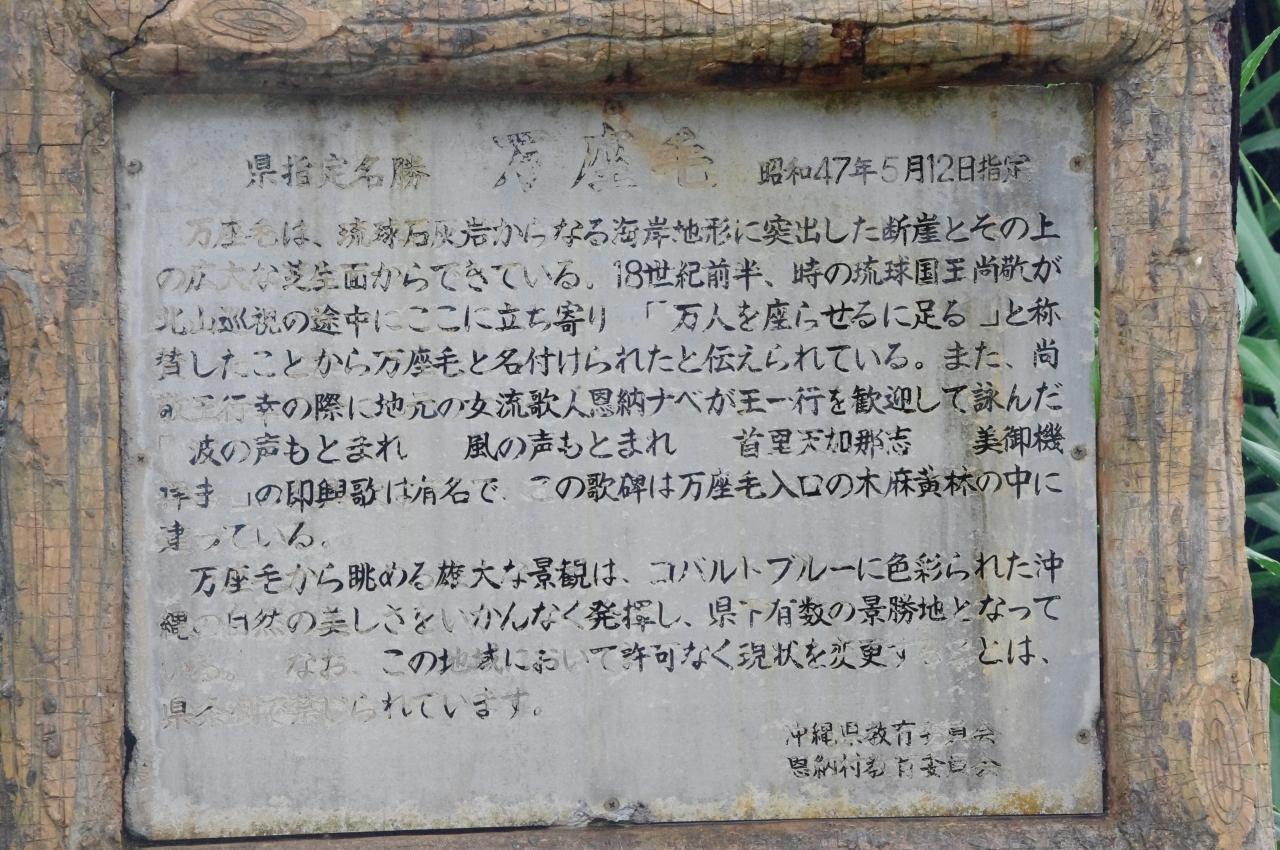 県指定名勝 万座毛 昭和47年5月12日指定
万座毛は、琉球石灰岩からなる海岸地形に突出した断崖とその上
の広大な芝生面からできている。18世紀前半、時の琉球国王尚敬が
北山巡視の途中にここに立ち寄り 「万人を座らせるに足る 」と称
賛したことから万座毛と名付けられたと伝えられている。また、尚
敬王行幸の際に地元の女流歌人恩納ナベが王一行を歓迎して詠んだ
「 波の声もとまれ 風の声もとまれ 首里天加那志 美御機
拝ま 」の即興歌は有名で、この歌碑は万座毛入口の木麻黄林の中に
建っている。
万座毛から眺める雄大な景観は、コバルトブルーに色彩られた沖
縄の自然の美しさをいかんなく発揮し、県下有数の景勝地となって
いる。 なお、この地域において許可なく現状を変更することは、
県条例で禁じられています。
沖縄県教育委員会
恩納村教育委員会